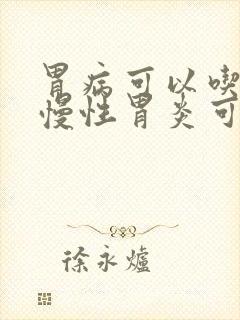 胃病可以喫
慢性胃炎可
徐永爐